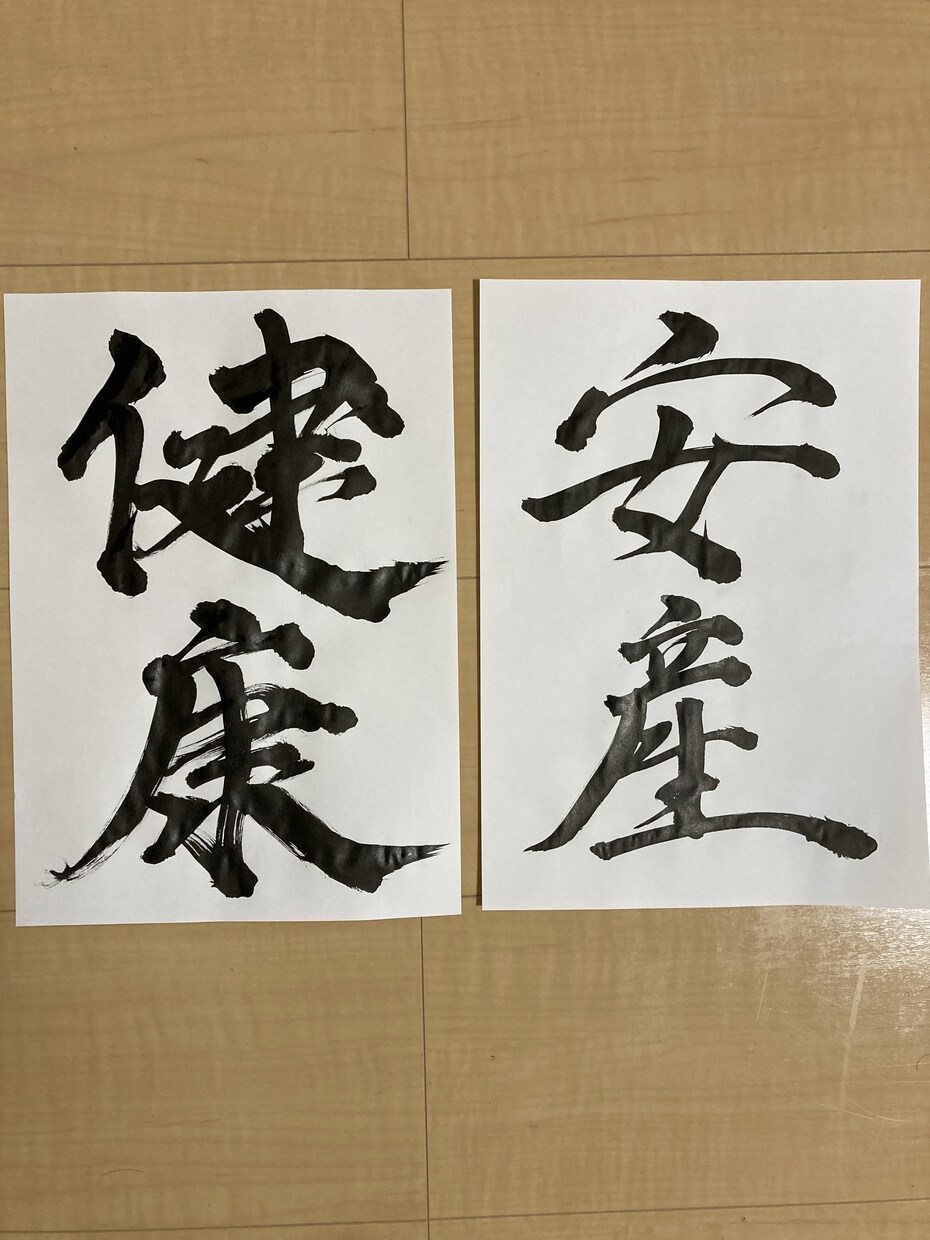 安産
健康